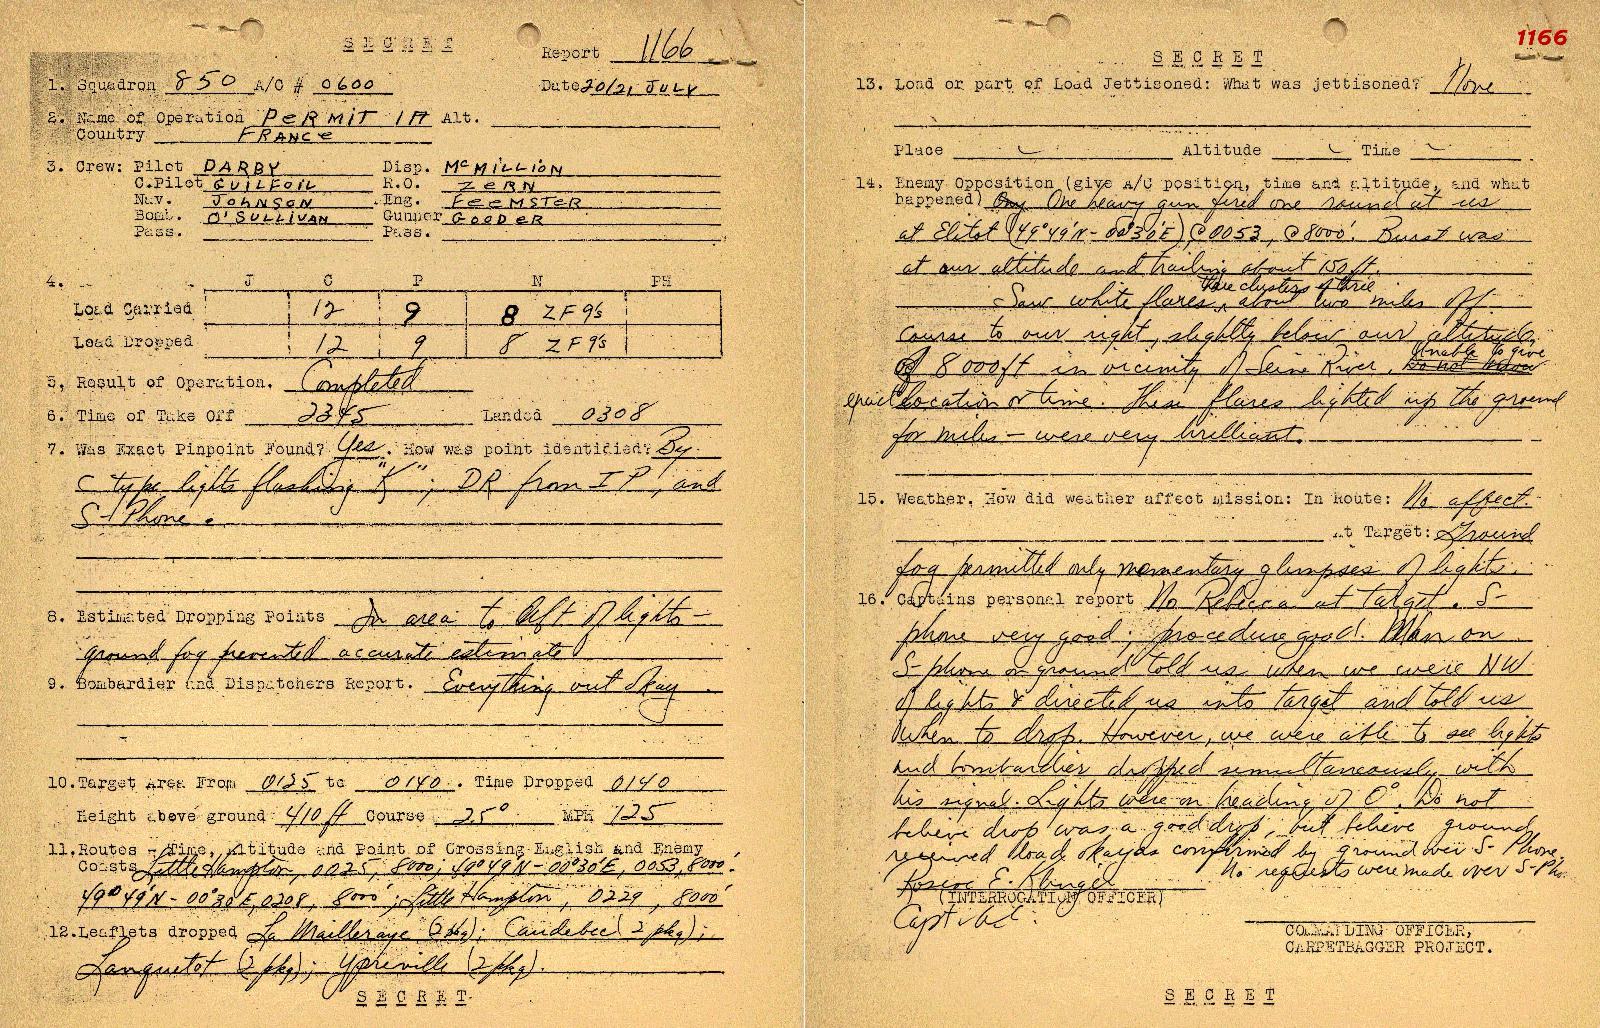 SECRET
Report 1166
1. Squadron 850 A/C # 0600 Date 20/21 JULY
2. Name of Operation PERMIT 1A Alt.
Country FRANCE
3. Crew: Pilot DARBY Disp. McMILLION
C.Pilot GUILFOIL R.O. ZERN
Nav. JOHNSON Eng. FEEMSTER
Bomb. O'SULLIVAN Gunner GOODER
Pass. Pass.
4. J C P N PH
Load Carried 12 9 8 ZF9's
Load Dropped 12 9 8 ZF9's
5. Result of Operation. Completed
6. Time of Take Off 2345 Landed 0308
7. Was Exact Pinpoint Found? Yes. How was point identidied? By
C type lights flashing "K"; DR from IP, and
S-Phone.
8. Estimated Dropping Points In area to left of lights -
ground fog prevented accurate estimate
9. Bombardier and Dispatchers Report. Everything out okay.
10. Target Area From 0135 to 0140. Time Dropped 0140
Height above ground 410 ft Course 25° MPH 125
11. Routes - Time, Altitude and Point of Crossing English and Enemy
Coasts Little Hampton, 0025, 8000; 49°49'N-00°30'E, 0053, 8000'.
49°49'N-00°30'E, 0208, 8000'; Little Hampton, 0229, 8000'
12. Leaflets dropped La Mailleraye (2 pkg); Caudebec (2 pkg);
Lanquetot (2 pkg); Ypreville (2 pkg).
SECRET
1166
SECRET
13. Load or part of Load Jettisoned: What was jettisoned? None
Place Altitude Time
14. Enemy Opposition (give A/C position, time and altitude, and what
happened) One heavy gun fired one round at us
at Eletot (49°49'N-00°30'E) @ 0053, @ 8000'. Burst was
at our altitude and trailing about 150 ft.
Saw white flares, three clusters of three about two miles off
course to our right, slightly below our altitude
of 8000 ft in vicinity of Seine River. Unable to give
exact location or time. These flares lighted up the ground
for miles - were very brilliant.
15. Weather. How did weather affect mission: In Route: No affect.
At Target: Ground
fog permitted only momentary glimpses of lights.
16. Captains personal report No Rebecca at target. S-
phone very good; procedure good. Man on
S-phone on ground told us when we were NW
of lights & directed us into target and told us
when to drop. However, we were able to see lights
and bombardier dropped simultaneously with
his signal. Lights were on heading of 0°. Do not
believe drop was a good drop, but believe ground
received load okay as confirmed by ground over S-Phone.
No requests were made over S-Pho.
Roscoe E. Klinger
(INTERROGATION OFFICER)
Capt AC.
COMMANDING OFFICER,
CARPETBAGGER PROJECT.
SECRET